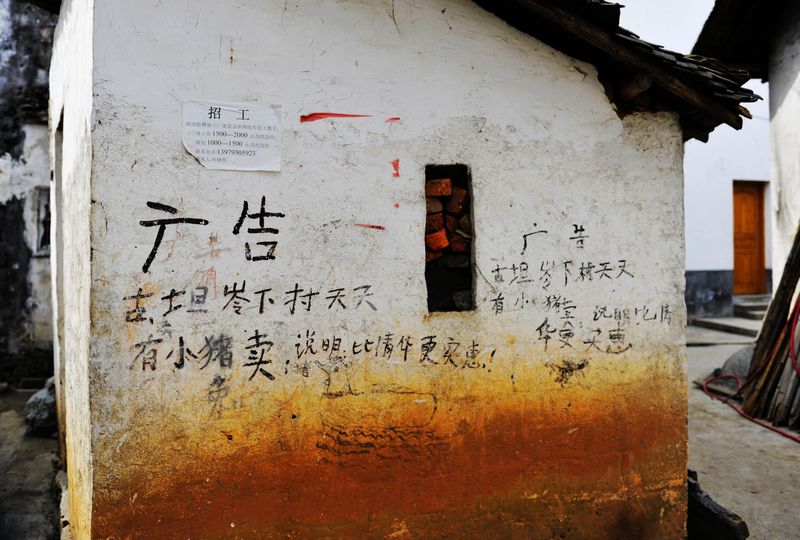 招 工
1500---2000
1000---1500
联系电话13979305923
广告
古坦岺下村天天
有小猪卖！说明比清华更实惠！
广 告
古坦岺下村天天
有小猪卖 说明比清
华更实惠